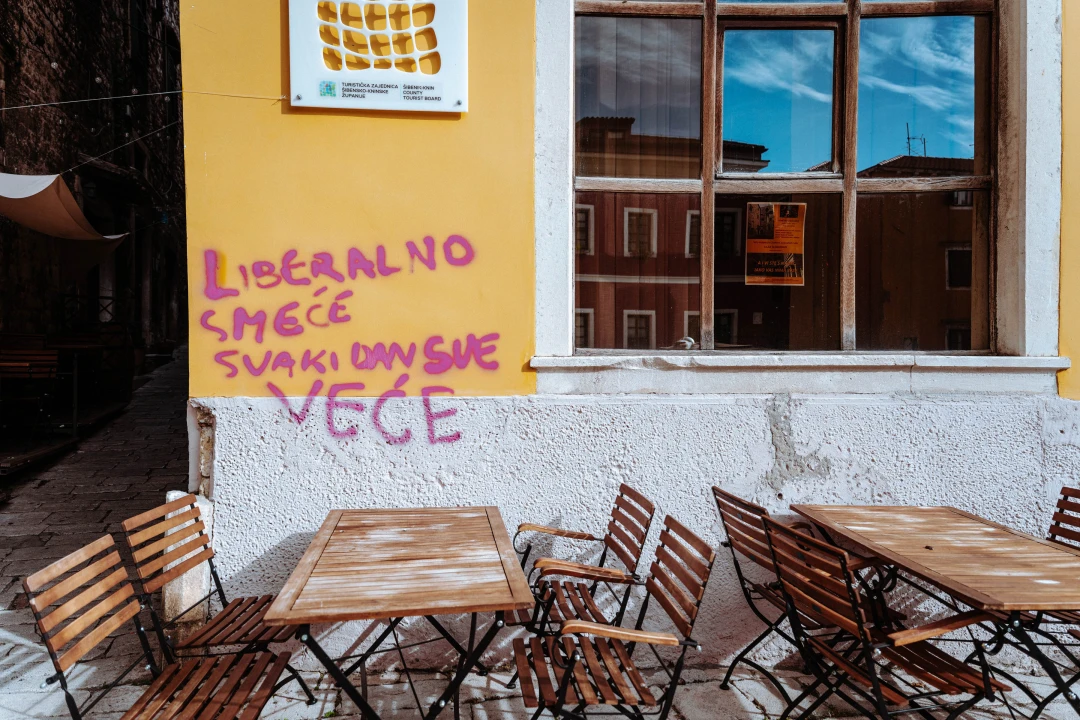 TURISTIČKA ZAJEDNICA
ŠIBENSKO-KNINSKE
ŽUPANIJE
ŠIBENIK-KNIN
COUNTY
TOURIST BOARD
LIBERALNO
SMEĆE
SVAKI DAN SVE
VEĆE